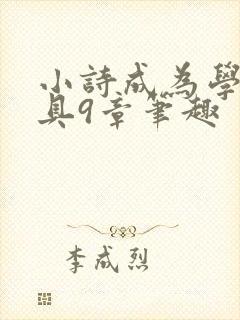 小詩成為學
具9章筆趣
李成烈